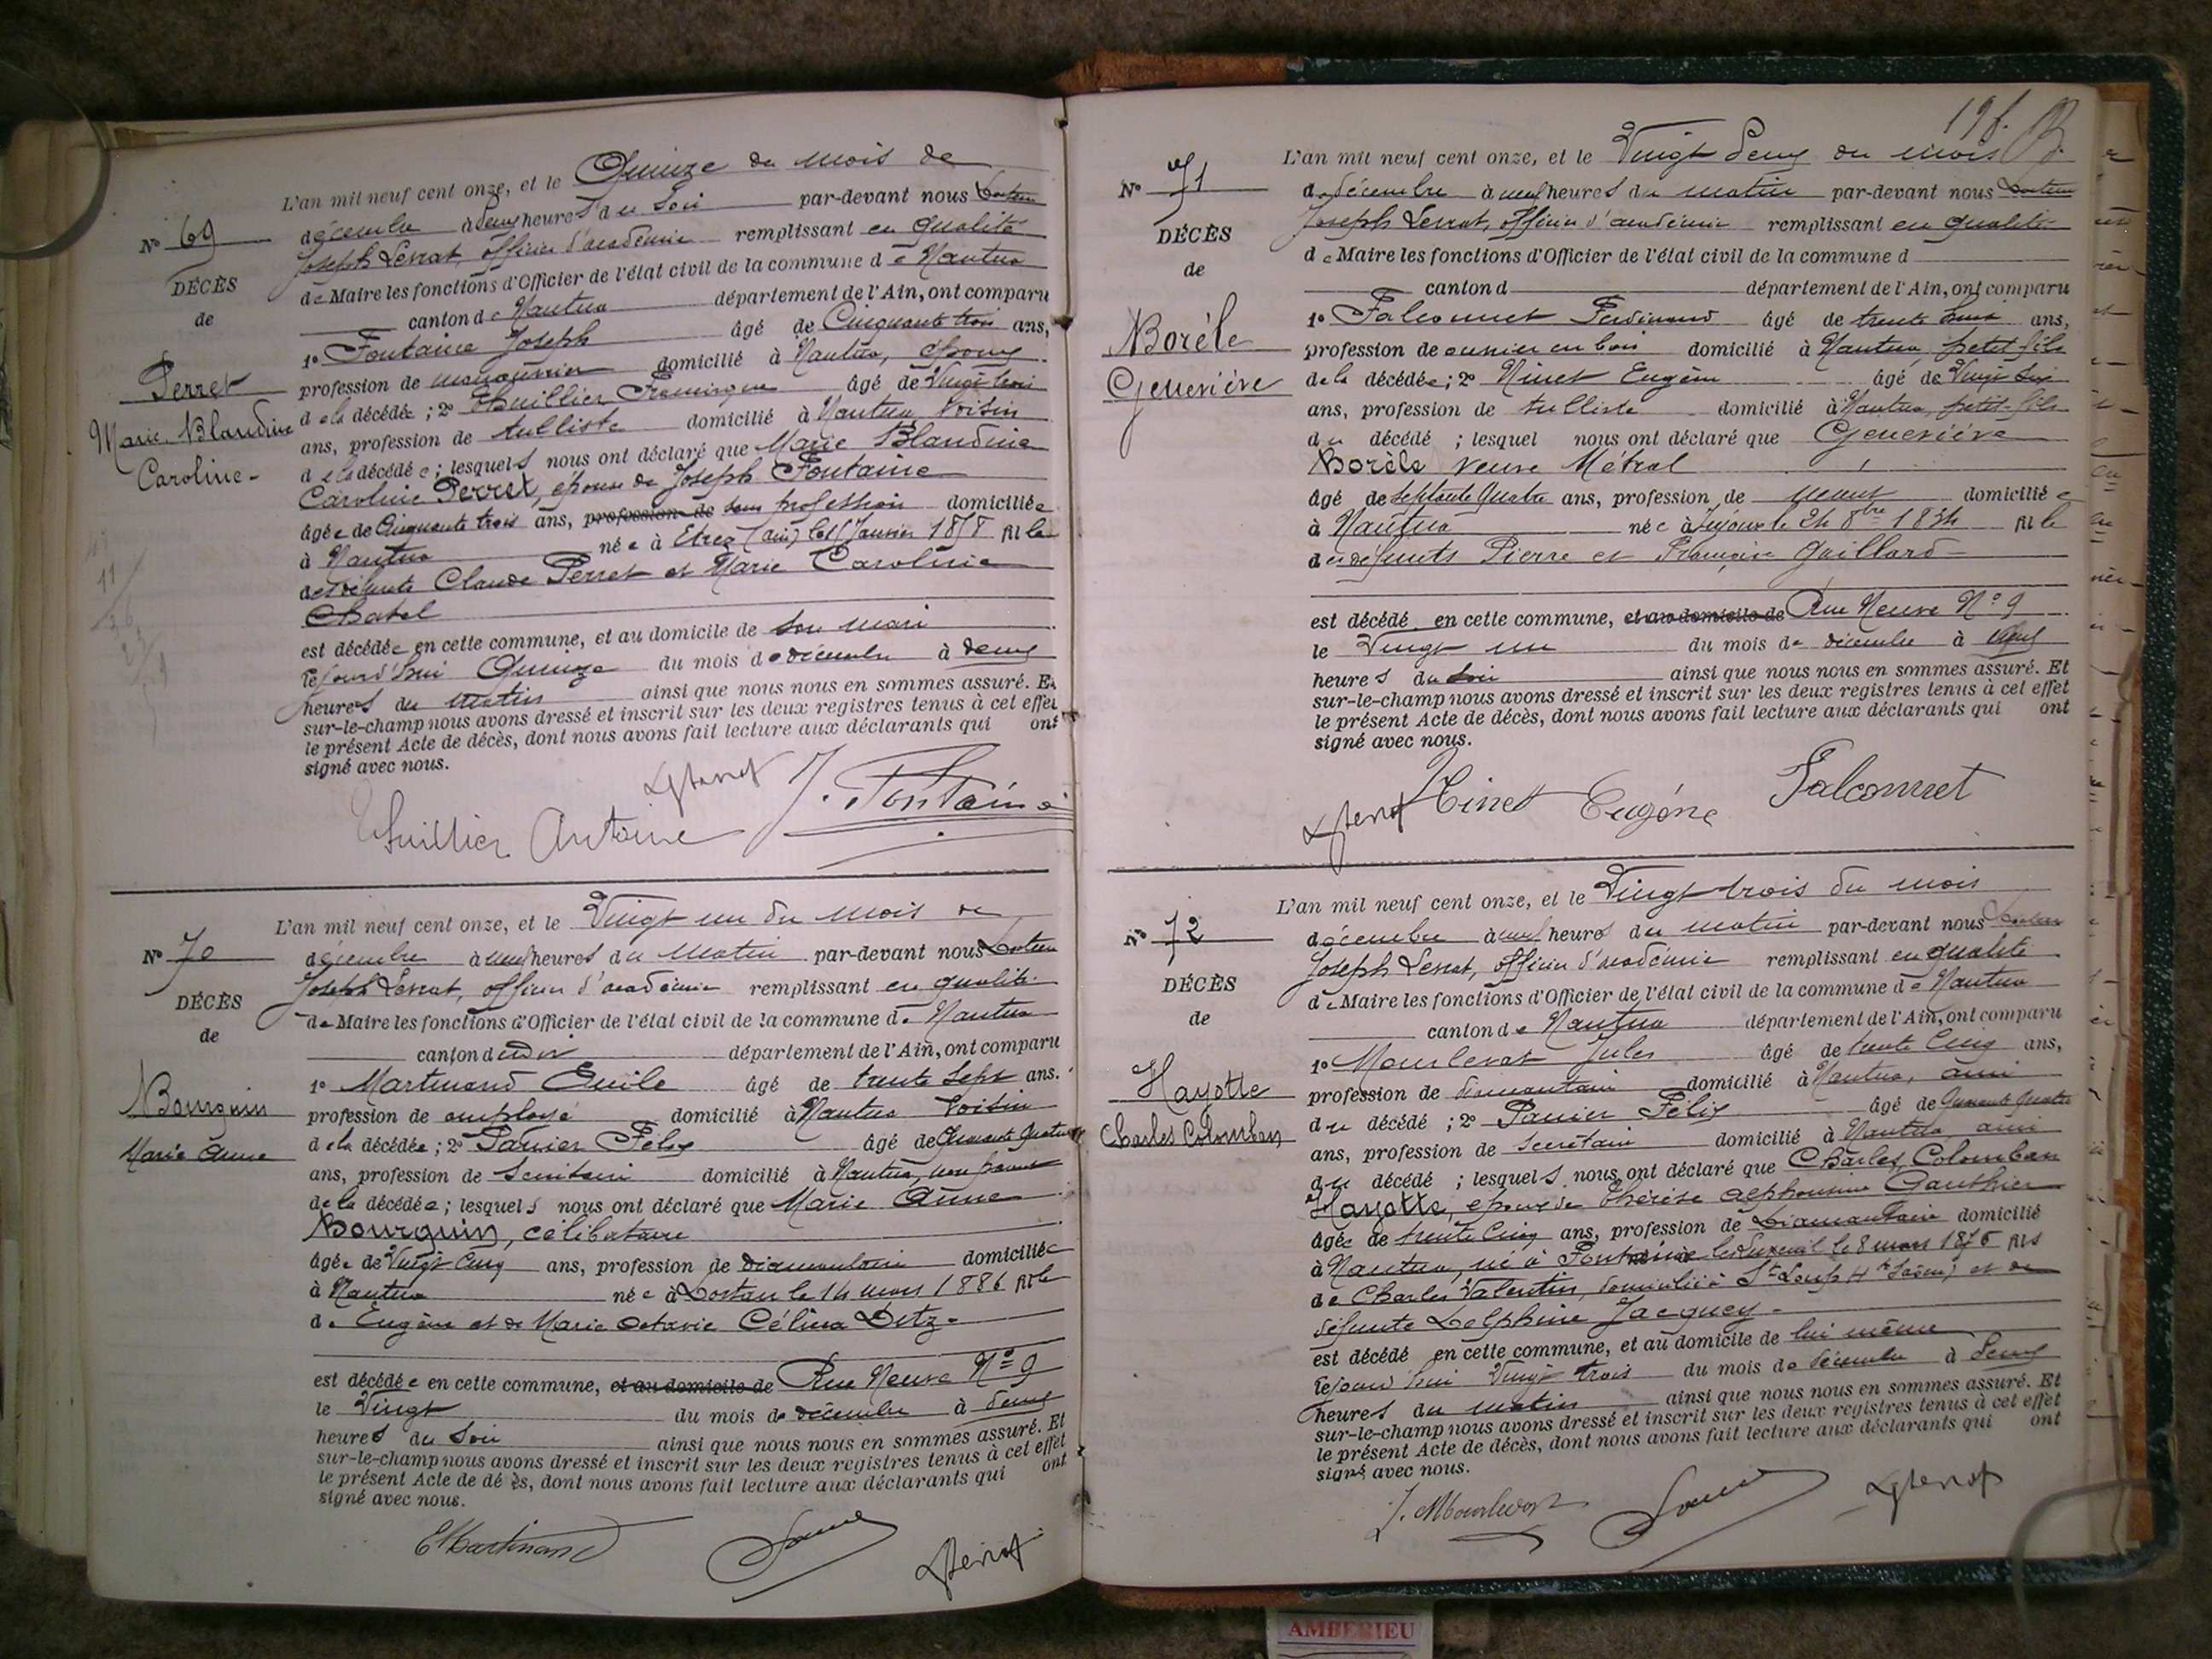 L'an mil neuf cent onze, et le Quinze du mois de
N° 69
décembre à deux heures du Soir par-devant nous Docteur
Joseph Levrat, officier d'académie remplissant en qualité
DÉCÈS
de Maire les fonctions d'Officier de l'état civil de la commune de Nantua
de
canton de Nantua département de l'Ain, ont comparu
1° Fontaine Joseph âgé de Cinquante trois ans,
Perret
profession de manouvrier domicilié à Nantua, époux
Marie Blandine
de la décédée ; 2° Thuillier âgé de Vingt trois
Caroline
ans, profession de tulliste domicilié à Nantua, voisin
de la décédée ; lesquels nous ont déclaré que Marie Blandine
Caroline Perret, épouse de Joseph Fontaine
âgée de Cinquante trois ans, profession de sans profession domiciliée
à Nantua née à Etrez (Ain) le Janvier 1858 fille
des défunts Claude Perret et Marie Caroline
Chatel
est décédée en cette commune, et au domicile de son mari
cejourd'hui Quinze du mois de décembre à deux
heures du matin ainsi que nous nous en sommes assuré. Et
sur-le-champ nous avons dressé et inscrit sur les deux registres tenus à cet effet
le présent Acte de décès, dont nous avons fait lecture aux déclarants qui ont
signé avec nous.
Thuillier Antoine J. Fontaine
L'an mil neuf cent onze, et le Vingt un du mois de
N° 70
décembre à neuf heures du matin par-devant nous Docteur
Joseph Levrat, officier d'académie remplissant en qualité
DÉCÈS
de Maire les fonctions d'Officier de l'état civil de la commune de Nantua
de
canton dudit département de l'Ain, ont comparu
1° Martinand Emile âgé de trente sept ans.
Bourguin
profession de employé domicilié à Nantua voisin
Marie Anne
de la décédée ; 2° Panier Félix âgé de Quarante Quatre
ans, profession de Secrétaire domicilié à Nantua, non parent
de la décédée ; lesquels nous ont déclaré que Marie Anne
Bourguin, célibataire
âgée de Vingt Cinq ans, profession de diamantaire domiciliée
à Nantua née à Dortan le 14 mars 1886 fille
de Eugène et de Marie Octavie Célina Ditz
est décédée en cette commune, et au domicile de Rue Neuve N° 9
le Vingt du mois de décembre à deux
heures du Soir ainsi que nous nous en sommes assuré. Et
sur-le-champ nous avons dressé et inscrit sur les deux registres tenus à cet effet
le présent Acte de décès, dont nous avons fait lecture aux déclarants qui ont
signé avec nous.
E Martinand
198.
L'an mil neuf cent onze, et le Vingt deux du mois
N° 71
de décembre à neuf heures du matin par-devant nous Docteur
Joseph Levrat, officier d'académie remplissant en qualité
DÉCÈS
de Maire les fonctions d'Officier de l'état civil de la commune d
de
canton d département de l'Ain, ont comparu
1° Falconnet Ferdinand âgé de trente ans,
Borèle
profession de ouvrier en bois domicilié à Nantua, petit fils
Geneviève
de la décédée ; 2° Ninet Eugène âgé de Vingt Six
ans, profession de tulliste domicilié à Nantua, petit-fils
du décédé ; lesquel nous ont déclaré que Geneviève
Borèle veuve Métral
âgé de Septante Quatre ans, profession de néant domiciliée
à Nantua née à le 24 8bre 1834 fille
des défunts Pierre et Françoise Gaillard
est décédé en cette commune, et au domicile de Rue Neuve N° 9
le Vingt un du mois de décembre à neuf
heures du Soir ainsi que nous nous en sommes assuré. Et
sur-le-champ nous avons dressé et inscrit sur les deux registres tenus à cet effet
le présent Acte de décès, dont nous avons fait lecture aux déclarants qui ont
signé avec nous.
Ninet Eugéne Falconnet
L'an mil neuf cent onze, et le Vingt trois du mois
N° 72
décembre à neuf heures du matin par-devant nous Docteur
Joseph Levrat, officier d'académie remplissant en qualité
DÉCÈS
de Maire les fonctions d'Officier de l'état civil de la commune de Nantua
de
canton de Nantua département de l'Ain, ont comparu
1° Mourlevat Jules âgé de trente Cinq ans,
Hayotte
profession de diamantaire domicilié à Nantua, ami
Charles Colomban
du décédé ; 2° Panier Félix âgé de Quarante Quatre
ans, profession de Secrétaire domicilié à Nantua ami
du décédé ; lesquels nous ont déclaré que Charles Colomban
Hayotte, époux de Thérèse Alphonsine Gauthier
âgée de trente Cinq ans, profession de Diamantaire domicilié
à Nantua, né à les Luxeuil le 8 mars 1876 fils
de Charles Valentin, domicilié à St Loup (Hte Saône) et de
défunte Delphine Jacquey
est décédé en cette commune, et au domicile de lui même
cejourd'hui Vingt trois du mois de décembre à deux
heures du matin ainsi que nous nous en sommes assuré. Et
sur-le-champ nous avons dressé et inscrit sur les deux registres tenus à cet effet
le présent Acte de décès, dont nous avons fait lecture aux déclarants qui ont
signé avec nous.
J. Mourlevat
AMBERIEU